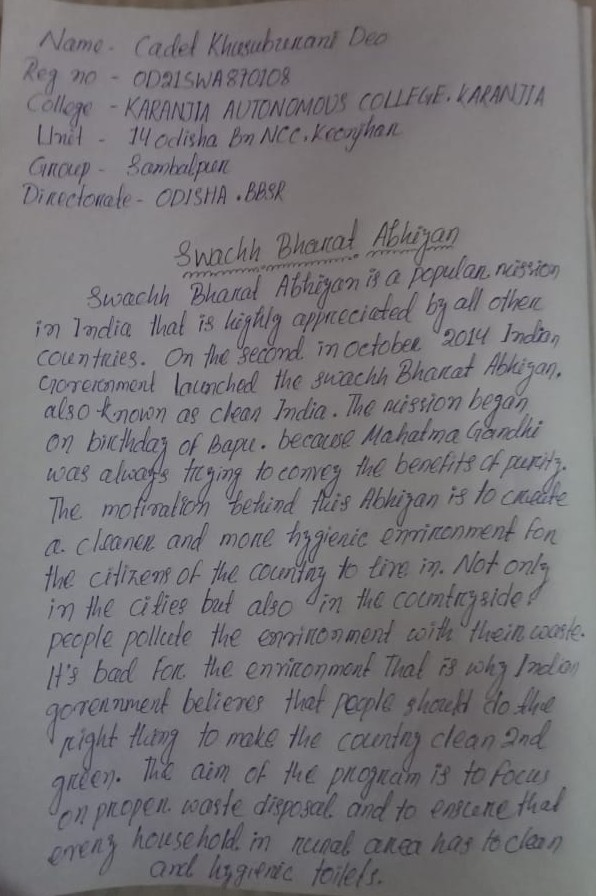 Name - Cadet Khusuburani Deo
Reg no - OD21SWA870108
College - KARANJIA AUTONOMOUS COLLEGE, KARANJIA
Unit - 14 odisha Bn NCC, Keonjhar
Group - Sambalpur
Directorate - ODISHA, BBSR
Swachh Bharat Abhiyan
Swachh Bharat Abhiyan is a popular mission
in India that is highly appreciated by all other
countries. On the second in october 2014 Indian
Government launched the swachh Bharat Abhiyan.
also known as clean India. The mission began
on birthday of Bapu. because Mahatma Gandhi
was always trying to convey the benefits of purity.
The motivation behind this Abhiyan is to create
a cleaner and more hygienic environment for
the citizens of the country to live in. Not only
in the cities but also in the countryside
people pollute the environment with their waste.
It's bad for the environment That is why Indian
government believes that people should do the
right thing to make the country clean and
green. The aim of the program is to focus
on proper waste disposal and to ensure that
every household in rural area has to clean
and hygienic toilets.